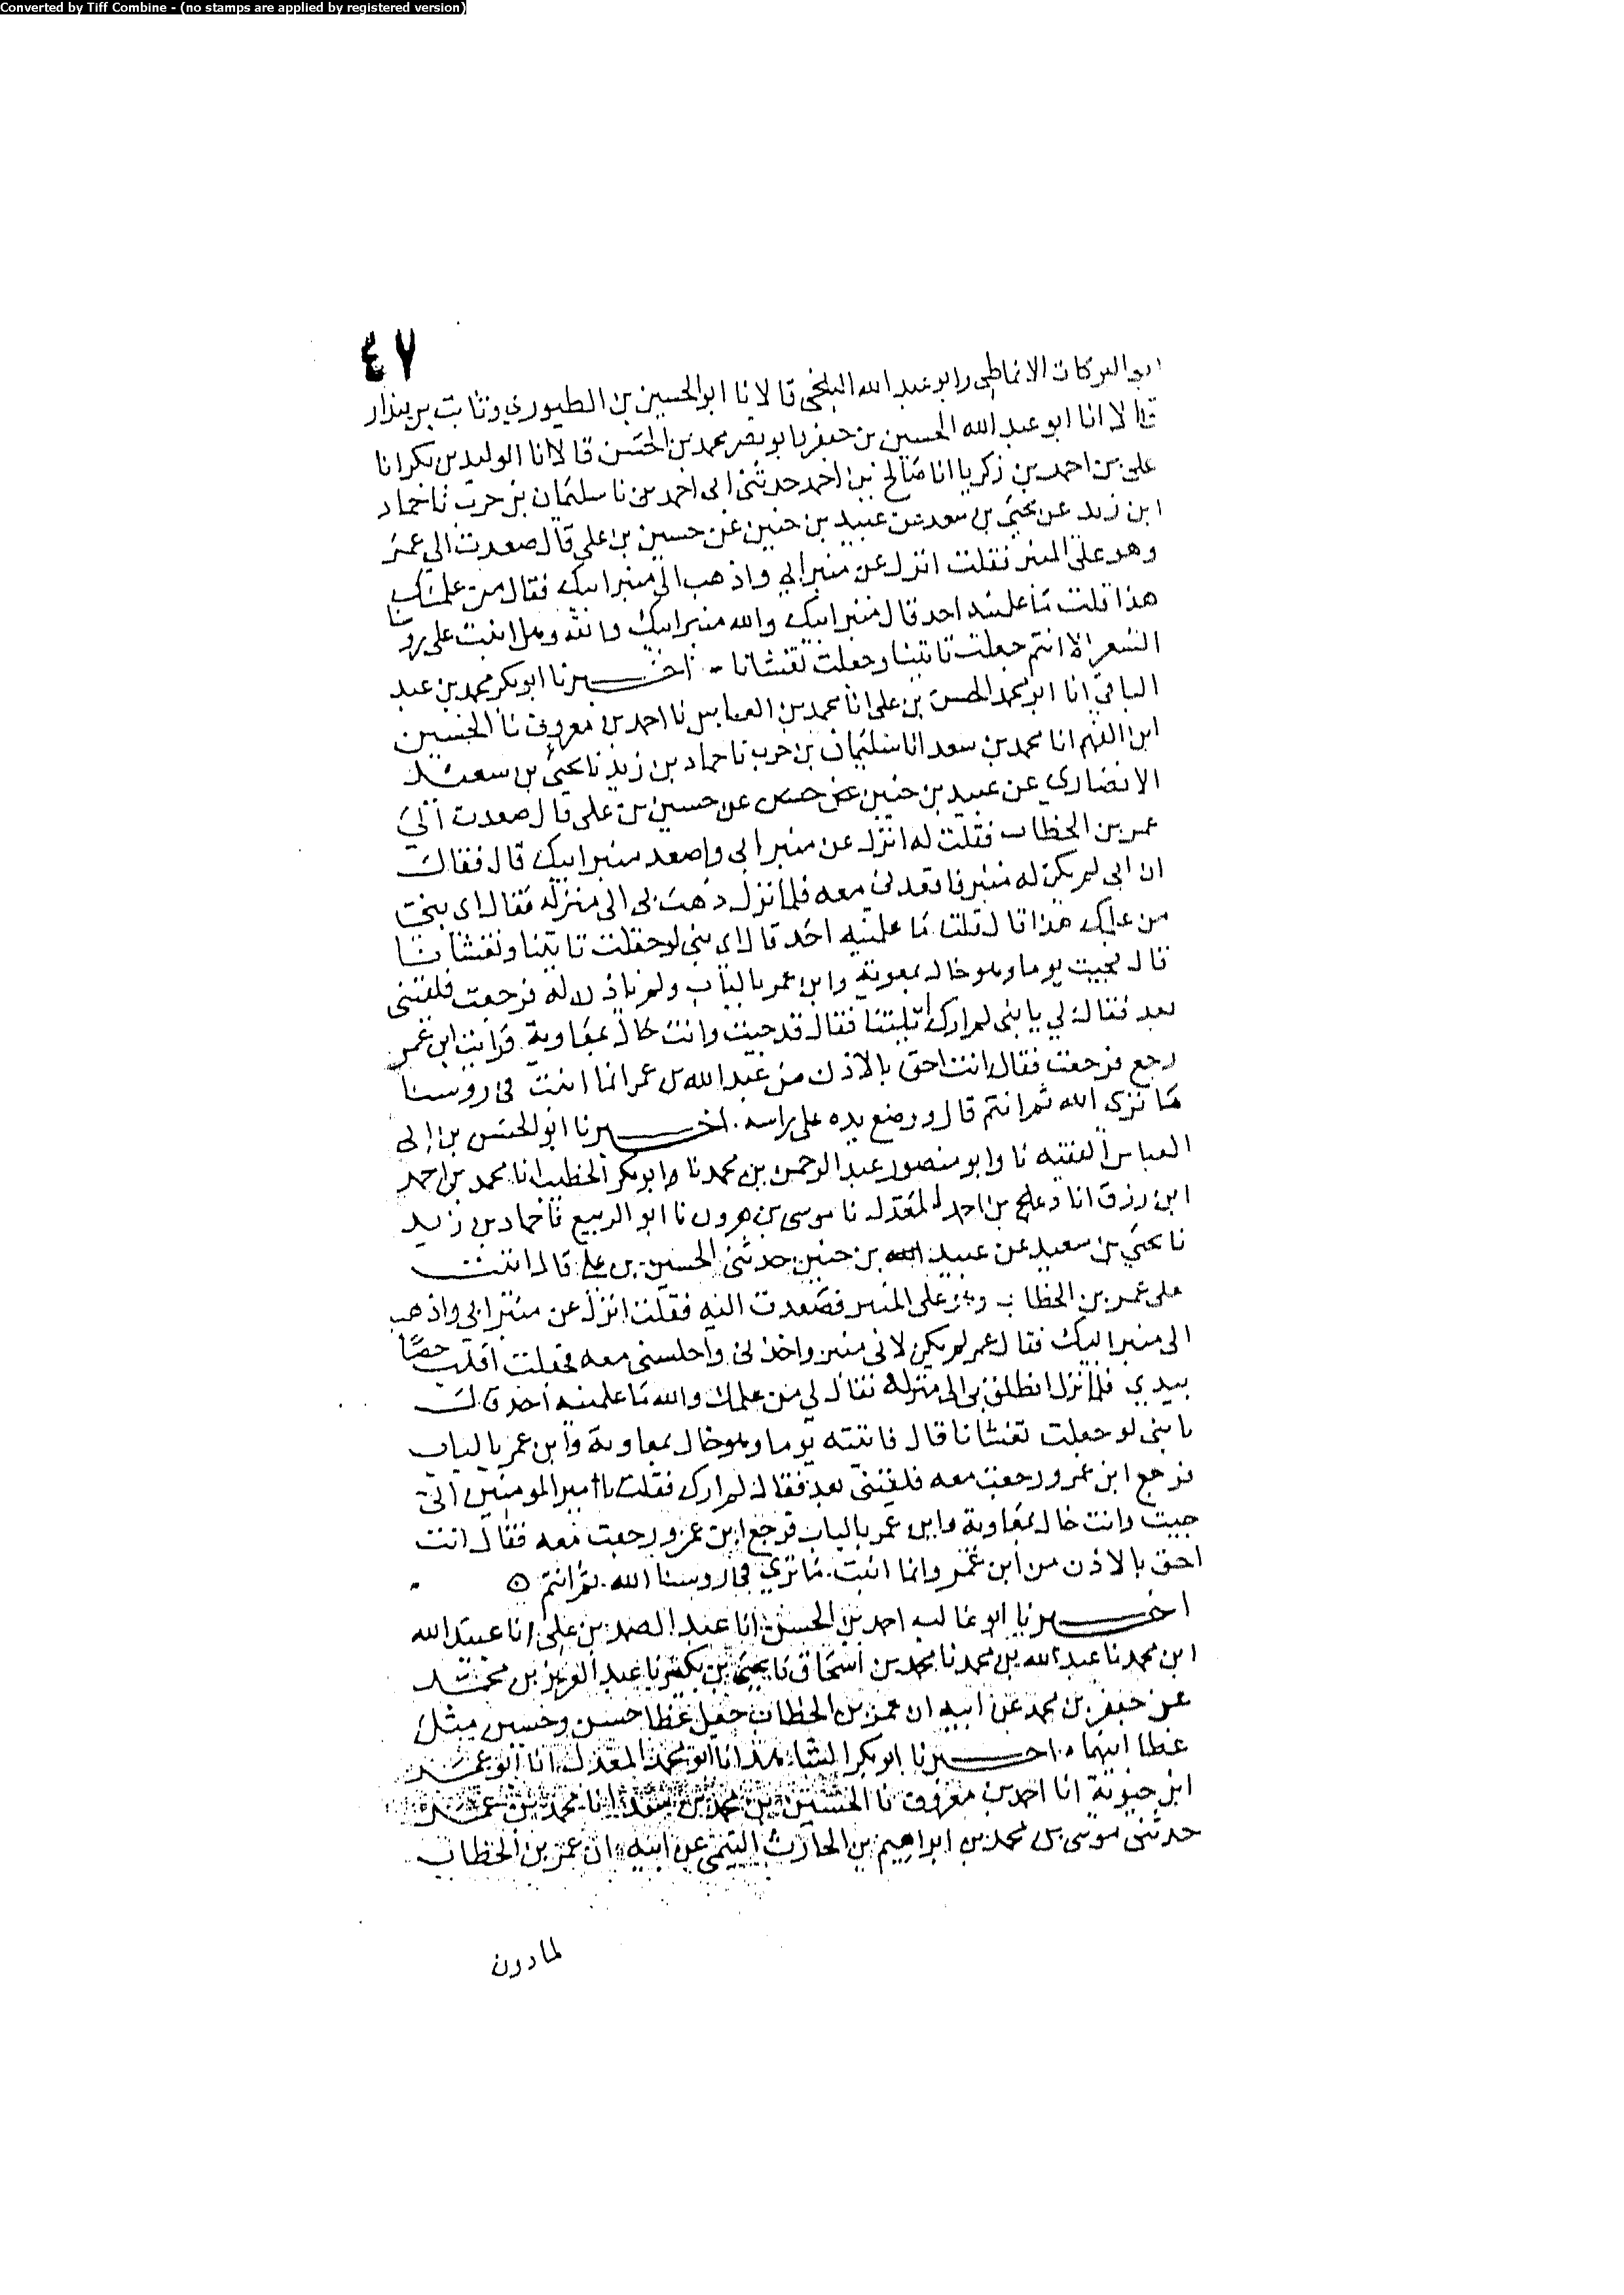 Converted by Tiff Combine - (no stamps are applied by registered version)
٤٧
ابو البركات الانماطي وابو عبد الله البلخي قالا انا ابو الحسين بن الطيوري وثابت بن بندار
قالا انا ابو عبد الله الحسين بن جعفر وابو نصر محمد بن الحسن قالا نا الوليد بن بكر انا
على بن احمد بن زكريا انا صالح بن احمد حدثنى ابى احمد نا سليمان بن حرب نا حماد
ابن زيد عن يحيى بن سعد عن عبيد بن حنين عن حسين بن على قال صعدت الى عمر
وهو على المنبر فقلت انزل عن منبر ابي واذهب الى منبر ابيك فقال من علمك
هذا قلت ما علمنيه احد قال منبر ابيك والله منبر ابيك والله وهل انبت على روسنا
الشعر الا انتم جعلت تاتينا وجعلت تغشانا اخبرنا ابو بكر محمد بن عبد
الباقي انا ابو محمد الحسن بن على انا محمد بن العباس نا احمد بن معروف نا الحسين
ابن الفهم انا محمد بن سعد انا سليمان بن حرب نا حماد بن زيد نا يحيى بن سعيد
الانصاري عن عبيد بن حنين عن حسين بن على قال صعدت الى
عمر بن الخطاب فقلت له انزل عن منبر ابى واصعد منبر ابيك قال فقال
ان ابى لم يكن له منبر فاقعدنى معه فلما نزل ذهب بى الى منزله فقال اى بنى
من علمك هذا قال قلت ما علمنيه احد قال اى بنى لو جعلت تاتينا وتغشانا
قال فجيت يوما وهو خال بمعوية وابن عمر بالباب ولم ياذن له فرجعت فلقينى
بعد فقال لي يا بنى لم ارك اتيتنا فقال قد جيت وانت خال بمعاوية فرايت ابن عمر
رجع فرجعت فقال انت احق بالاذن من عبد الله بن عمر انما انبت فى روسنا
ما ترى الله ثم انتم قال ووضع يده على راسه اخبرنا ابو الحسن بن ابي
العباس الفقيه نا وابو منصور عبد الرحمن بن محمد نا وابو بكر الخطيب انا محمد بن احمد
ابن رزق انا دعلج بن احمد المعدل نا موسى بن هرون نا ابو الربيع نا حماد بن زيد
نا يحيى بن سعيد عن عبيد بن حنين حدثنى الحسين بن على قال اتيت
على عمر بن الخطاب وهو على المنبر فصعدت اليه فقلت انزل عن منبر ابي واذهب
الى منبر ابيك فقال عمر لم يكن لابى منبر واخذنى واجلسنى معه فجعلت اقلب حصا
بيدي فلما نزل انطلق بى الى منزله فقال لي من علمك والله ما علمنيه احد قال
يا بنى لو جعلت تغشانا قال فاتيته يوما وهو خال بمعاوية وابن عمر بالباب
فرجع ابن عمر ورجعت معه فلقينى بعد فقال لم ارك فقلت يا امير المومنين انى
جيت وانت خال بمعاوية وابن عمر بالباب فرجع ابن عمر ورجعت معه فقال انت
احق بالاذن من ابن عمر وانما انبت ما تري في روسنا الله ثم انتم
اخبرنا ابو غالب احمد بن الحسن انا عبد الصمد بن على انا عبيد الله
ابن محمد نا عبد الله بن محمد نا محمد بن اسحاق نا يحيى بن بكير نا عبد العزيز بن محمد
عن جعفر بن محمد عن ابيه ان عمر بن الخطاب جعل عطا حسن وحسين مثل
عطا ابيهما اخبرنا ابو بكر الشاهد انا ابو محمد المعدل انا ابو عمر
ابن حيوية انا احمد بن معروف نا الحسين بن محمد بن سعد انا محمد بن عمر
حدثنى موسى بن محمد بن ابراهيم بن الحارث التيمى عن ابيه ان عمر بن الخطاب
لما دون